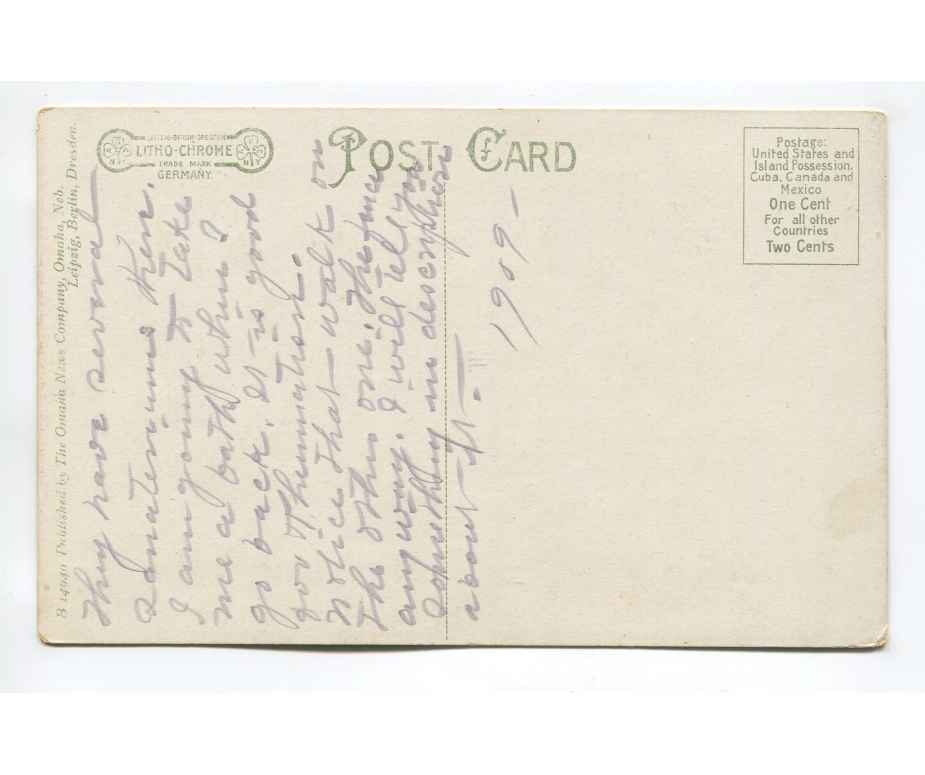 B 14940 Published by The Omaha News Company, Omaha, Neb.
Leipzig, Berlin, Dresden.
LITHO-CHROME
TRADE MARK
GERMANY.
POST CARD
Postage:
United States and
Island Possession.
Cuba, Canada and
Mexico
One Cent
For all other
Countries
Two Cents
They have several
Sanateriums here.
I am going to take
me a bath when I
go back. It is good
for Rheumatism.
Notice that walk on
the other one, the fence
any way. I will tell you
something in description
about it.
1909